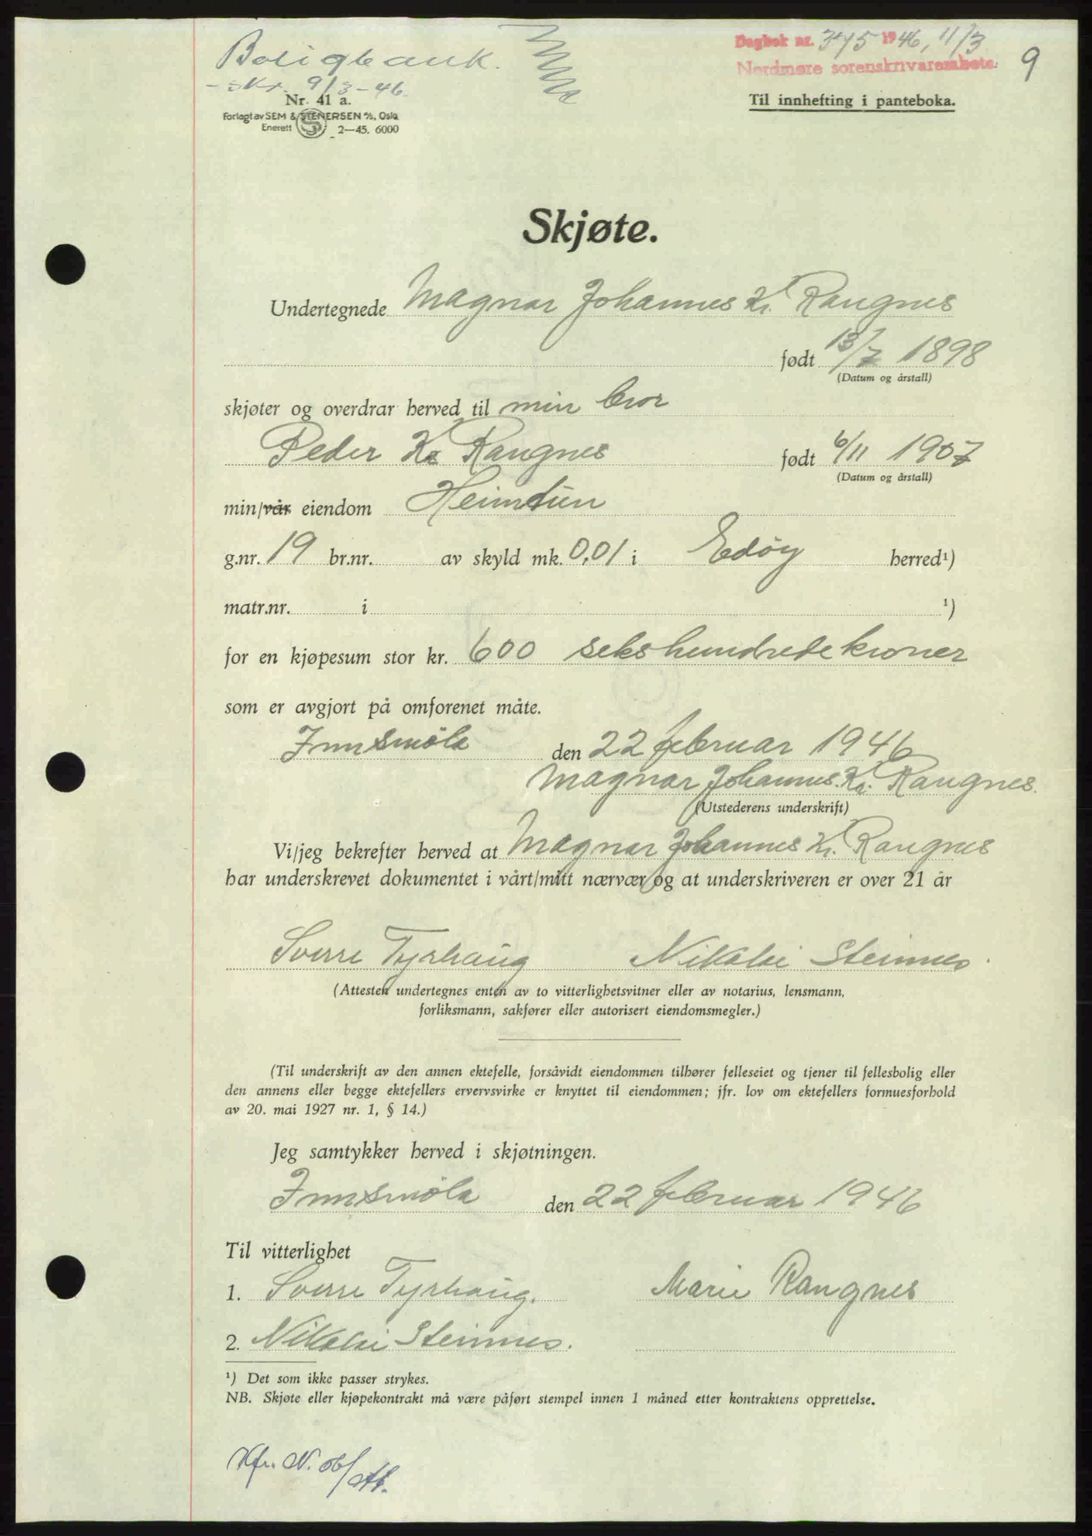 Boligbank.
9/3-46
Dagbok nr. 375 1946, 11/3
Nordmøre sorenskrivarembete
9
Nr. 41 a.
Forlagt av SEM & STENERSEN A/S, Oslo
Enerett 2—45. 6000
Til innhefting i panteboka.
Skjøte.
Undertegnede Magnar Johannes Kr. Rangnes
født 13/7 1898
(Datum og årstall)
skjøter og overdrar herved til min bror
Peder Kr Rangnes født 6/11 1907
(Datum og årstall)
min/vår eiendom Heimtun
g.nr. 19 br.nr. av skyld mk. 0,01 i Edøy herred¹)
matr.nr. i ¹)
for en kjøpesum stor kr. 600 sekshundrede kroner
som er avgjort på omforenet måte.
Innsmøla den 22 februar 1946
Magnar Johannes. Kr. Rangnes.
(Utstederens underskrift)
Vi/jeg bekrefter herved at Magnar Johannes Kr. Rangnes
har underskrevet dokumentet i vårt/mitt nærvær og at underskriveren er over 21 år
Sverre Tyrhaug Nikolai Steinnes.
(Attesten undertegnes enten av to vitterlighetsvitner eller av notarius, lensmann,
forliksmann, sakfører eller autorisert eiendomsmegler.)
(Til underskrift av den annen ektefelle, forsåvidt eiendommen tilhører felleseiet og tjener til fellesbolig eller
den annens eller begge ektefellers ervervsvirke er knyttet til eiendommen; jfr. lov om ektefellers formuesforhold
av 20. mai 1927 nr. 1, § 14.)
Jeg samtykker herved i skjøtningen.
Innsmøla den 22 februar 1946
Til vitterlighet
1. Sverre Tyrhaug. Marie Rangnes
2. Nikolai Steinnes.
¹) Det som ikke passer strykes.
NB. Skjøte eller kjøpekontrakt må være påført stempel innen 1 måned etter kontraktens opprettelse.